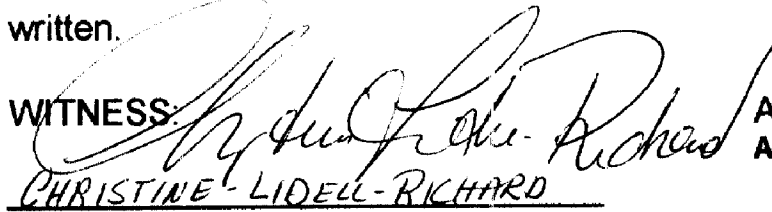 written.
WITNESS: A
A
CHRISTINE-LIDELL-RICHARD